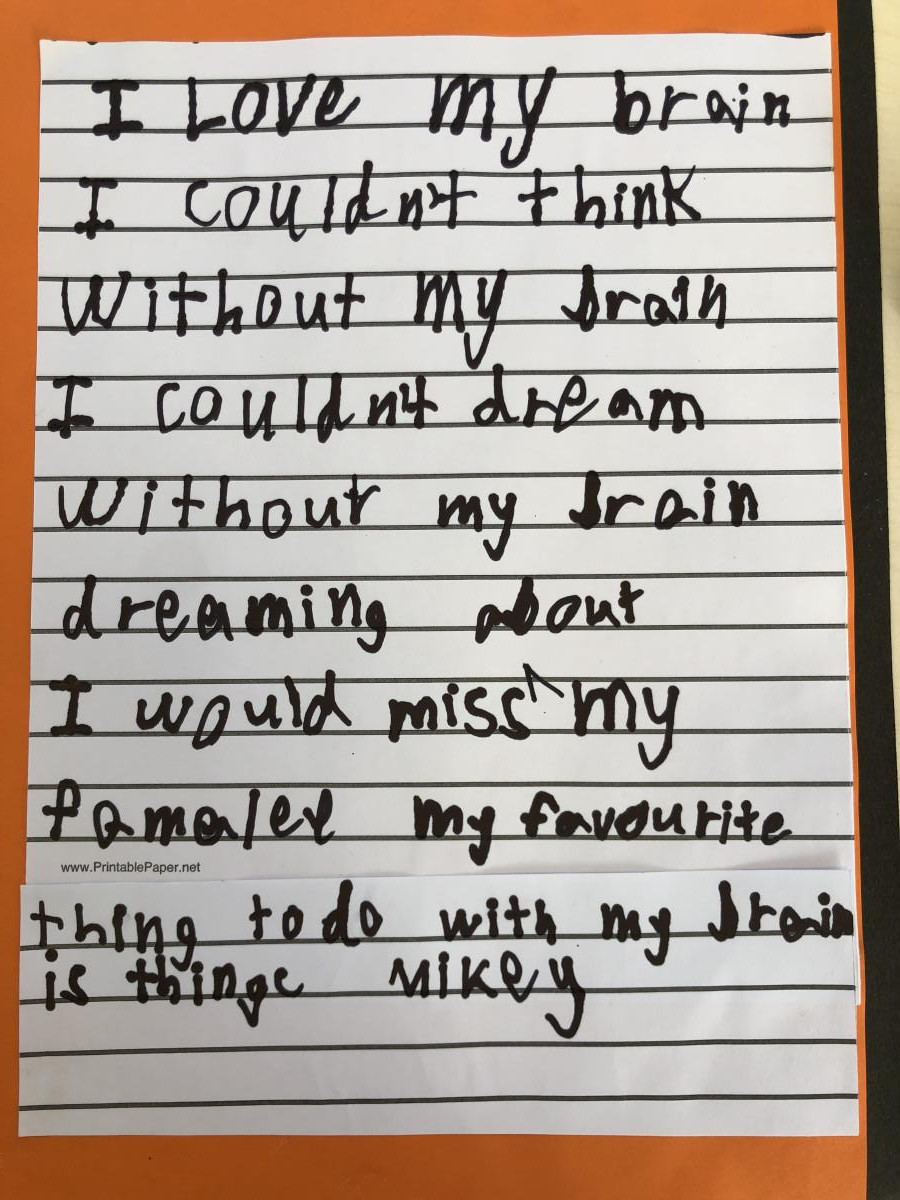 I Love my brain
I couldn't think
Without my brain
I couldn't dream
Without my brain
dreaming about
I would miss^my
famalee my favourite
www.PrintablePaper.net
thing to do with my brain
is thingc Mikey